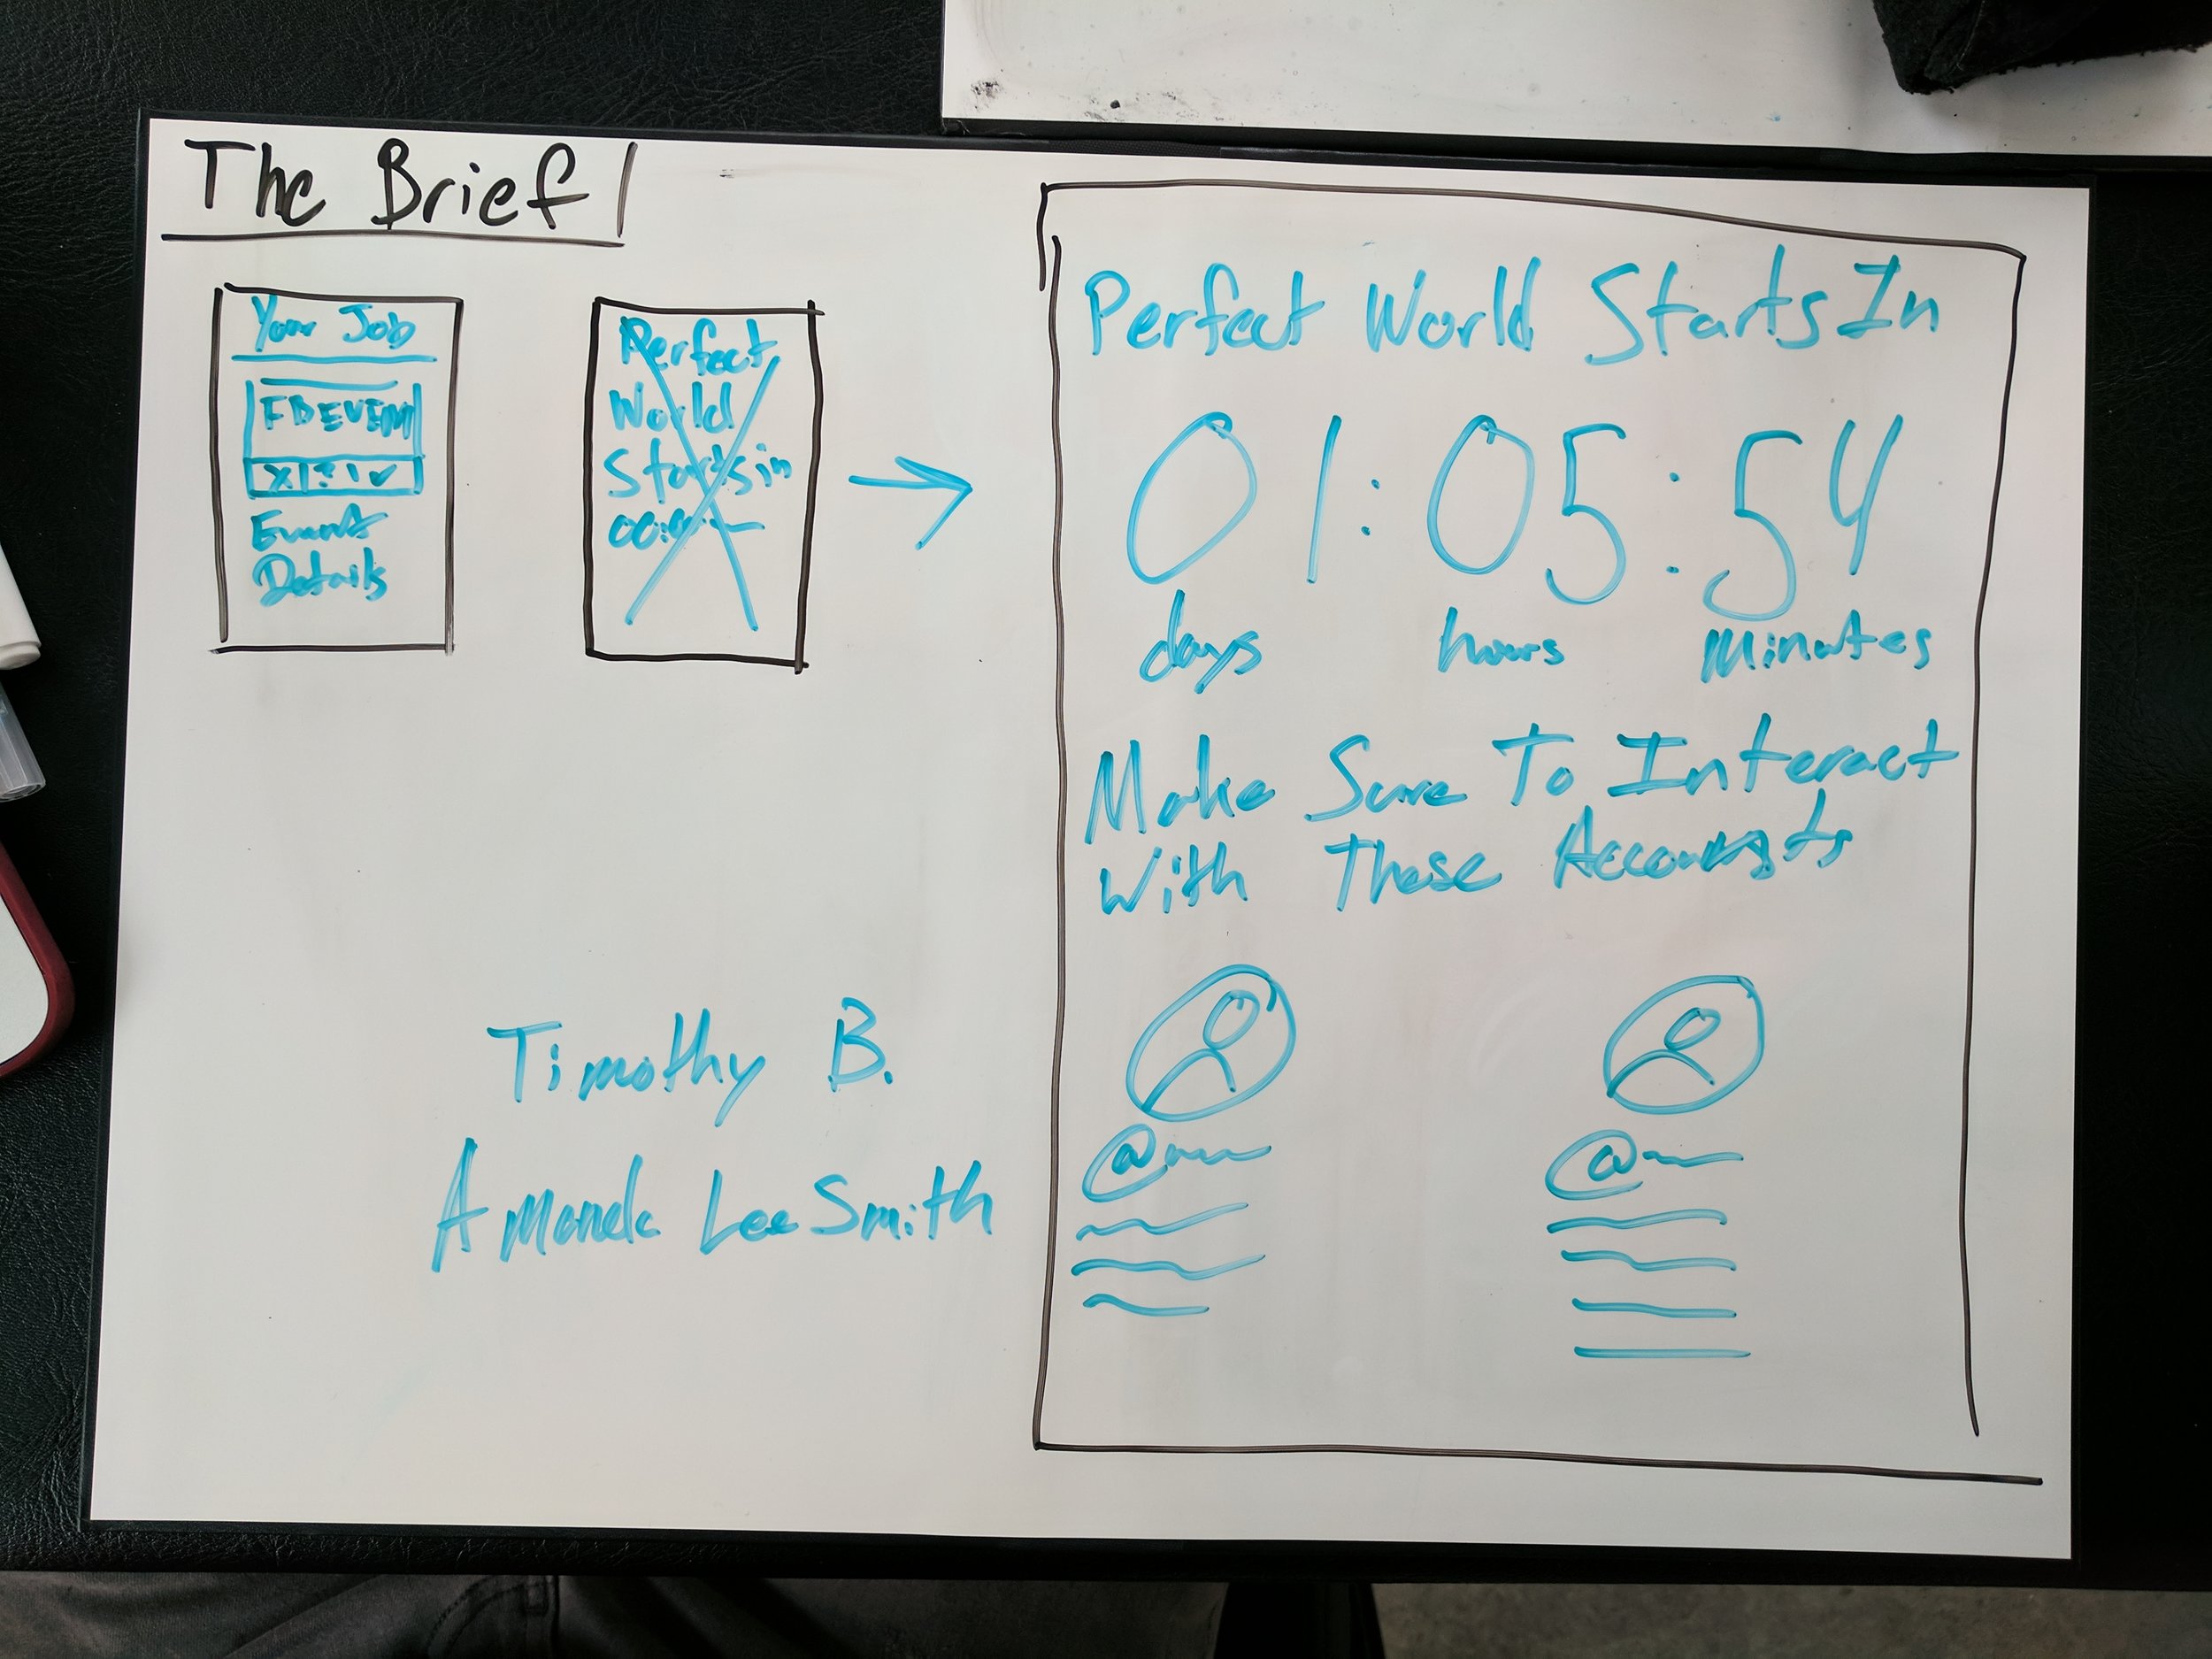 The Brief
Your Job
FB EVENT
X | ? | ✓
Event
Details
Perfect
World
Starts in
00:00
Perfect World Starts In
01:05:54
days hours minutes
Make Sure To Interact
With These Accounts
@
@
Timothy B.
Amanda Lee Smith